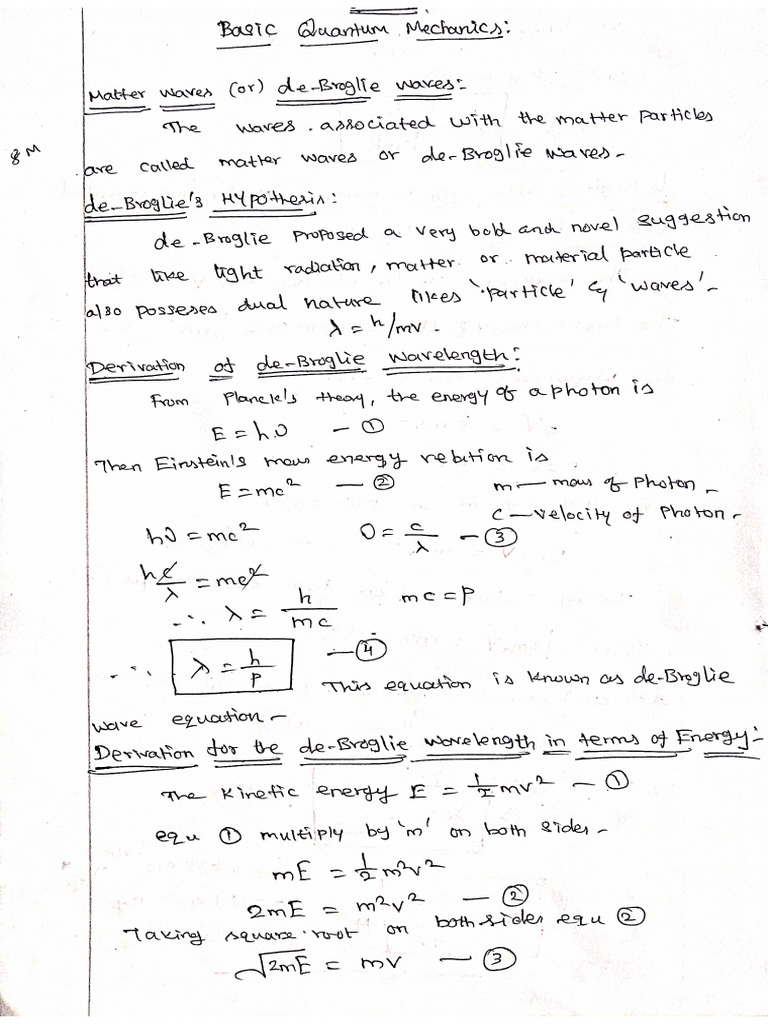 Basic Quantum Mechanics:
Matter waves (or) de-Broglie waves:-
The waves associated with the matter particles
8M
are called matter waves or de-Broglie waves-
de-Broglie's Hypothesis:
de-Broglie proposed a very bold and novel suggestion
that like light radiation, matter or material particle
also posseses dual nature likes 'particle' & 'waves'-
λ = h/mv.
Derivation of de-Broglie wavelength:
From Planck's theory, the energy of a photon is
E = hυ — ①
Then Einstein's mass energy relation is
E = mc² — ② m — mass of photon-
c — velocity of photon-
hυ = mc² υ = c/λ — ③
hc/λ = mc²
∴ λ = h/mc mc = p
∴ λ = h/p — ④
This equation is known as de-Broglie
wave equation-
Derivation for the de-Broglie wavelength in terms of Energy:-
The Kinetic energy E = 1/2 mv² — ①
equ ① multiply by 'm' on both sides-
mE = 1/2 m²v²
2mE = m²v² — ②
Taking square root on both sides equ ②
√2mE = mv — ③